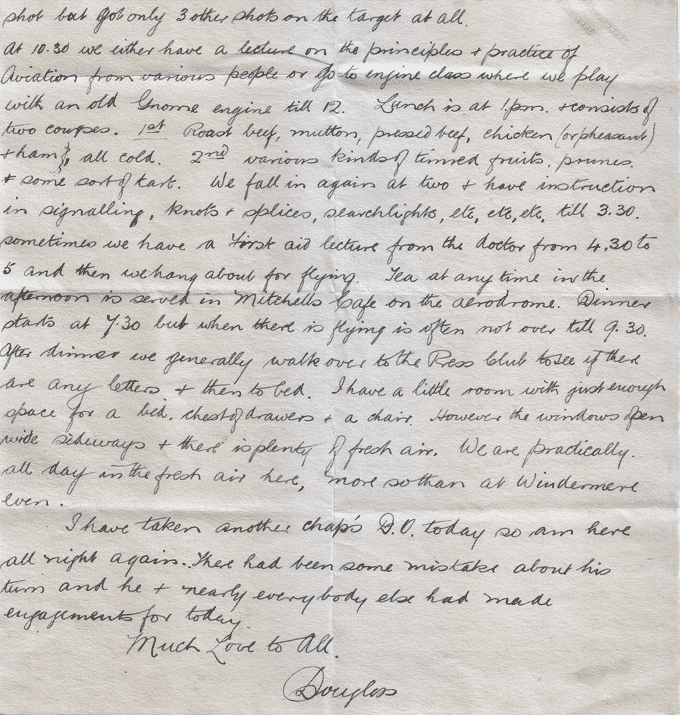 shot but got only 3 other shots on the target at all.
At 10.30 we either have a lecture on the principles + practice of
Aviation from various people or go to engine class where we play
with an old Gnome engine till 12. Lunch is at 1.pm. + consists of
two courses. 1st Roast beef, mutton, pressed beef, chicken (or pheasant)
+ ham, all cold. 2nd various kinds of tinned fruits, prunes.
+ some sort of tart. We fall in again at two + have instruction
in signalling, knots + splices, searchlights, etc, etc, etc, till 3.30.
sometimes we have a First aid lecture from the doctor from 4.30 to
5 and then we hang about for flying. Tea at any time in the
afternoon is served in Mitchells Cafe on the aerodrome. Dinner
starts at 7.30 but when there is flying is often not over till 9.30.
After dinner we generally walk over to the Press Club to see if there
are any letters + then to bed. I have a little room with just enough
space for a bed, chest of drawers + a chair. However the windows open
wide sideways + there is plenty of fresh air. We are practically.
all day in the fresh air here, more so than at Windermere
even.
I have taken another chap's D.O. today so am here
all night again. There had been some mistake about his
turn and he + nearly everybody else had made
engagements for today.
Much Love to All.
Douglas